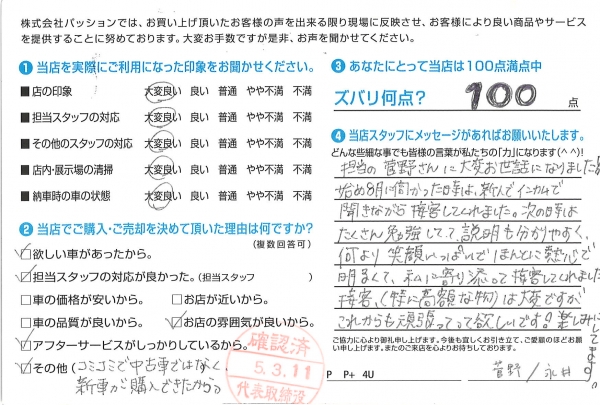 株式会社パッションでは、お買い上げ頂いたお客様の声を出来る限り現場に反映させ、お客様により良い商品やサービス
を提供することに努めております。大変お手数ですが是非、お声を聞かせてください。
① 当店を実際にご利用になった印象をお聞かせください。
■ 店の印象 大変良い 良い 普通 やや不満 不満
■ 担当スタッフの対応 大変良い 良い 普通 やや不満 不満
■ その他のスタッフの対応 大変良い 良い 普通 やや不満 不満
■ 店内・展示場の清掃 大変良い 良い 普通 やや不満 不満
■ 納車時の車の状態 大変良い 良い 普通 やや不満 不満
② 当店でご購入・ご売却を決めて頂いた理由は何ですか?
(複数回答可)
☑欲しい車があったから。
☑担当スタッフの対応が良かった。(担当スタッフ )
□車の価格が安いから。 □お店が近いから。
□車の品質が良いから。 ☑お店の雰囲気が良いから。
☑アフターサービスがしっかりしているから。
☑その他(コミコミで中古車ではなく、
新車が購入できたから)
確認済
5.3.11
代表取締役
③ あなたにとって当店は100点満点中
ズバリ何点? 100 点
④ 当店スタッフにメッセージがあればお願いいたします。
どんな些細な事でも皆様の言葉が私たちの「力」になります(^^)!
担当の菅野さんに大変お世話になりました。
始め8月に伺かった時は、新人でインカムで
聞きながら接客してくれました。次の時は
たくさん勉強してて、説明も分かりやすく、
何より笑顔いっぱいでほんとに熱心で
明るくて、私に寄り添って接客してくれました
接客、(特に高額な物)は大変ですが
これからも頑張ってって欲しいです? 楽しみにしてます。
ご協力に心より御礼申し上げます。今後も宜しくお引き立て、ご愛顧のほどお願
い申し上げます。またのご来店を心よりお待ちしております。
P P+ 4U 菅野/永井